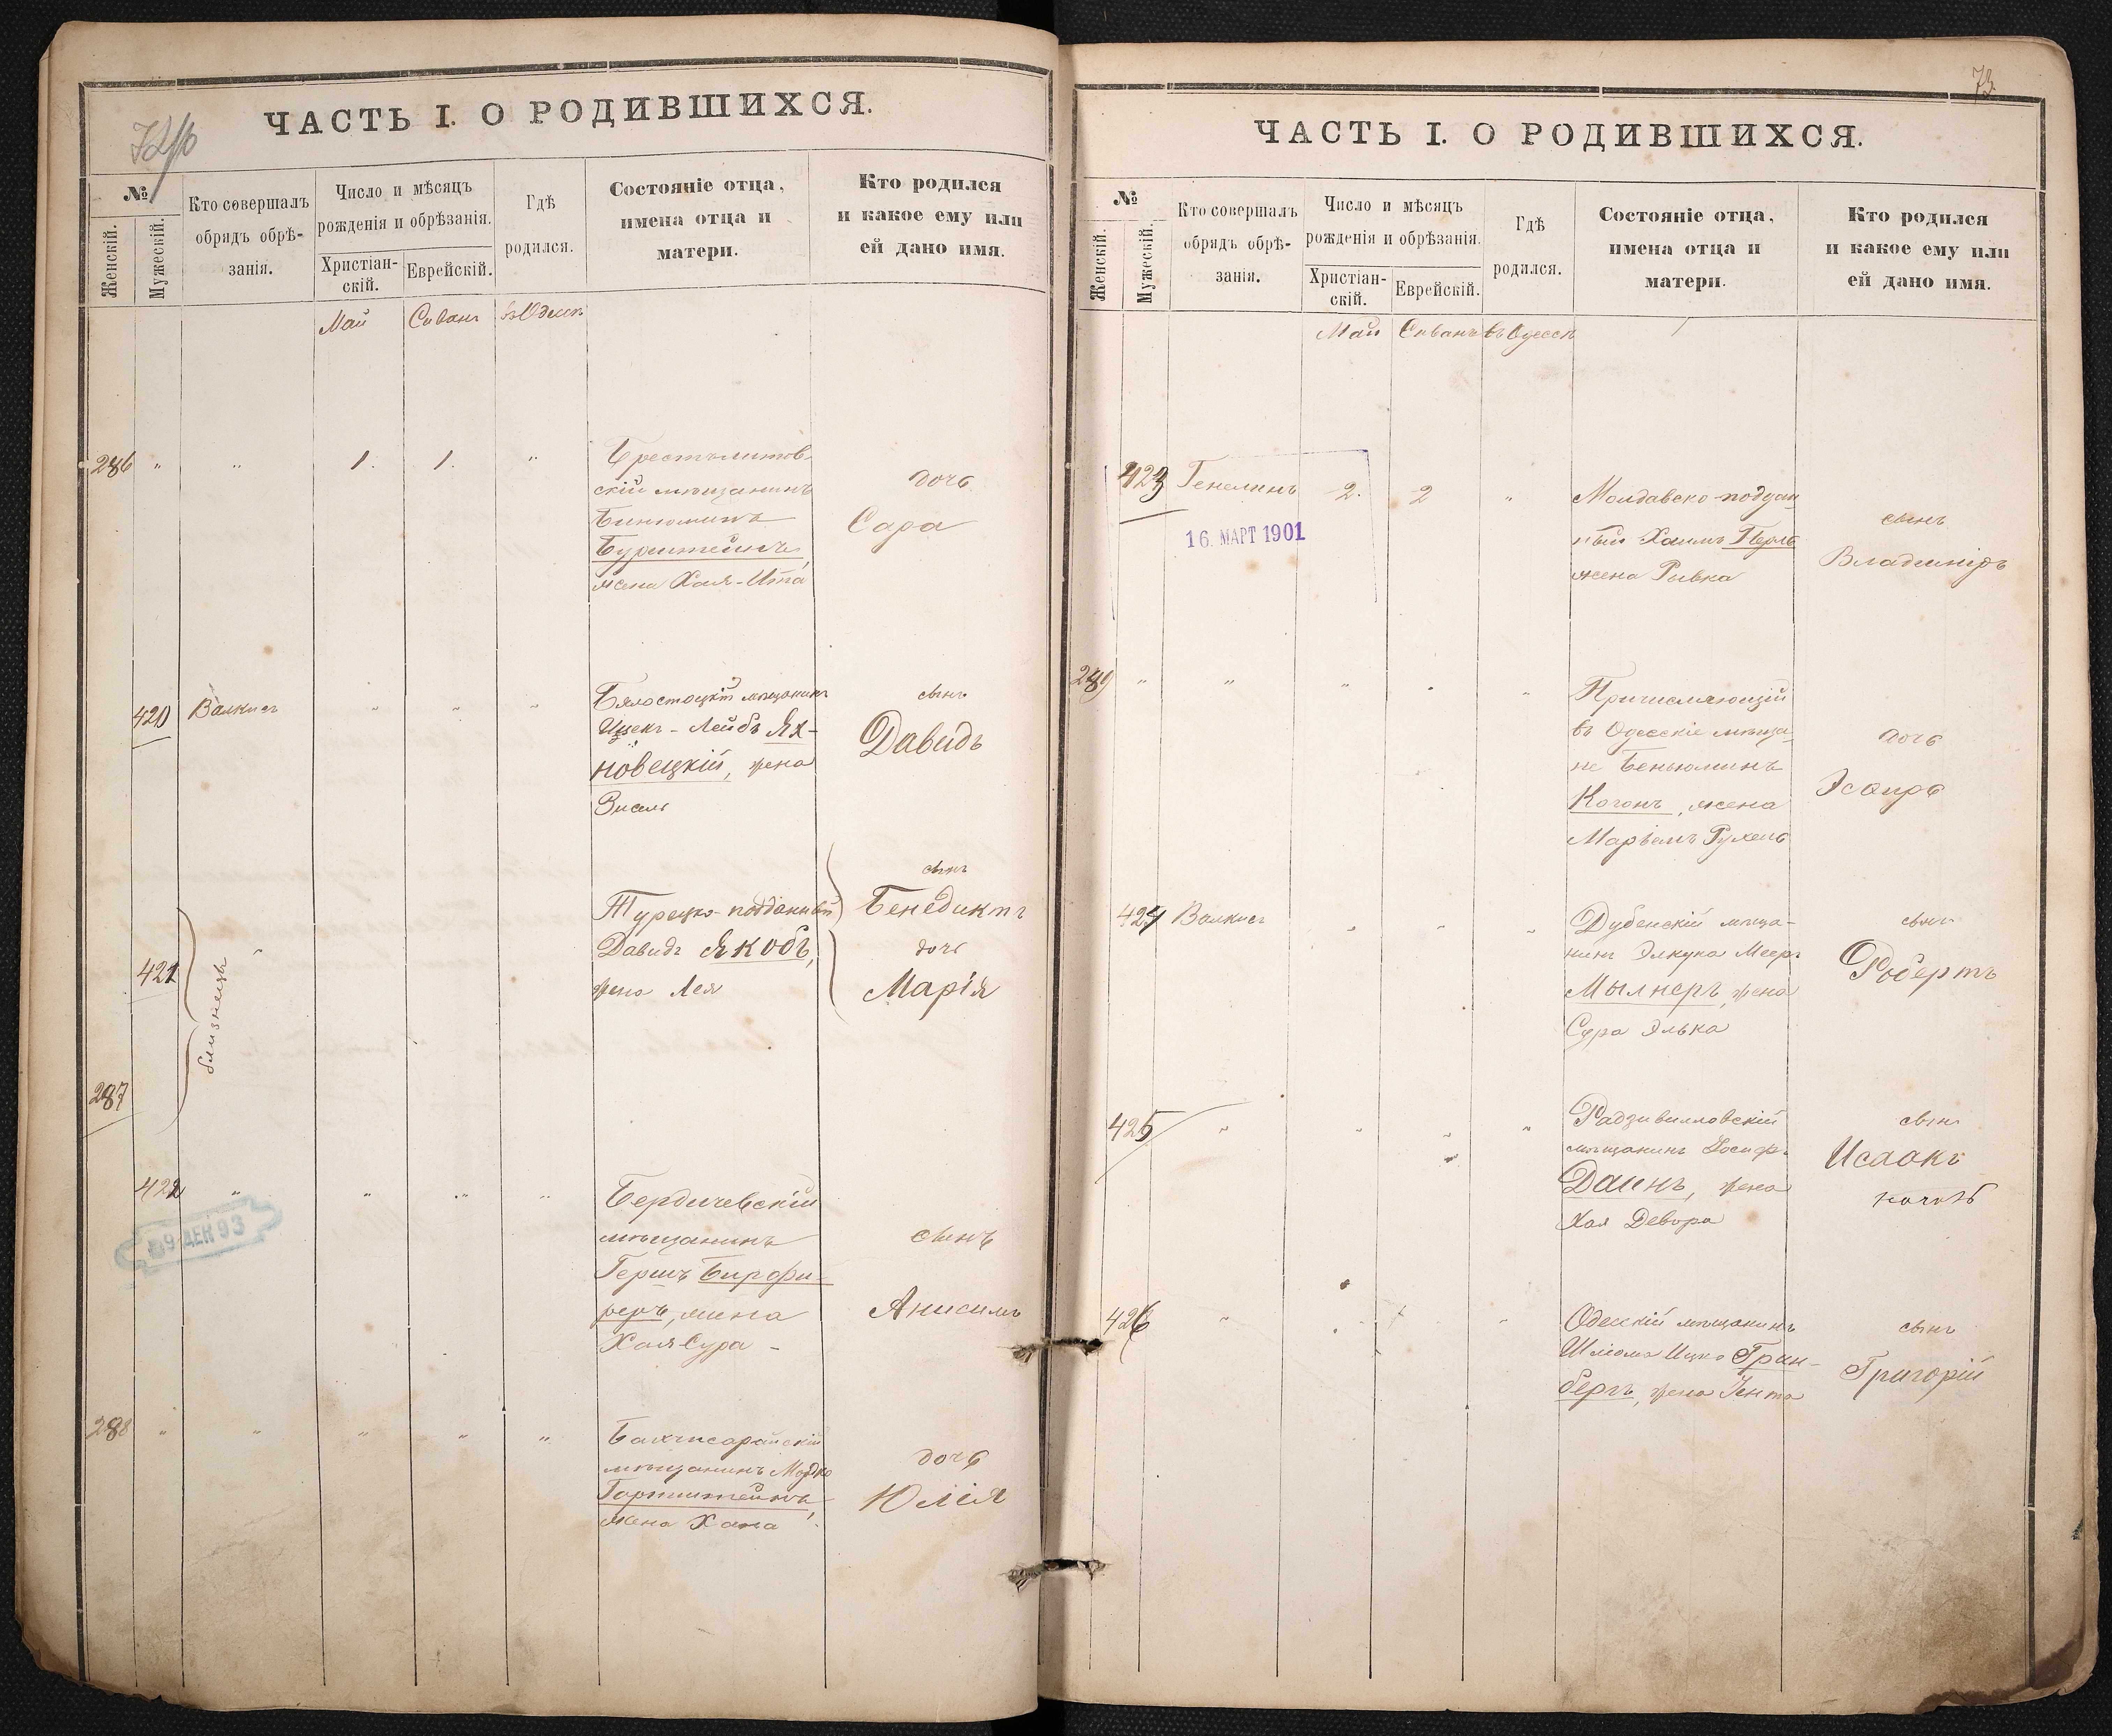 72/б
ЧАСТЬ I. О РОДИВШИХСЯ.
№
Женскій.
Мужескій.
Кто совершалъ
обрядъ обрѣ-
занія.
Число и мѣсяцъ
рожденія и обрѣзанія.
Христіан-
скій.
Еврейскій.
Гдѣ
родился.
Состояніе отца,
имена отца и
матери.
Кто родился
и какое ему или
ей дано имя.
Май Сиванъ
286 " " 1. 1. "
Брестълитов-
скій мѣщанинъ
Биньюминъ
Бурштейнъ,
жена Хая-Ита
дочь
Сара
420 Валкисъ " " "
Бялостоцкій мѣщанинъ
Ицекъ-Лейбъ Ях-
новецкій, жена
Зисель
сынъ
Давидъ
421 "
287
близнецы
Турецко-подданный
Давидъ Якобъ,
жена Лея
сынъ
Бенедиктъ
дочь
Марія
422 " " " "
9 ДЕК 93
Бердичевскій
мѣщанинъ
Гершъ Бирфи-
реръ, жена
Хая Сура -
сынъ
Анисимъ
288 " " " " "
Бахчисарайскій
мѣщанинъ Мордко
Гортштейнъ,
жена Хана
дочь
Юлія
73
ЧАСТЬ I. О РОДИВШИХСЯ.
№
Женскій.
Мужескій.
Кто совершалъ
обрядъ обрѣ-
занія.
Число и мѣсяцъ
рожденія и обрѣзанія.
Христіан-
скій.
Еврейскій.
Гдѣ
родился.
Состояніе отца,
имена отца и
матери.
Кто родился
и какое ему или
ей дано имя.
Май Сиванъ въ Одессѣ
423 Генелинъ 2. 2 "
16. МАРТ 1901
Молдавско-поддан
ный Хаимъ Перль
жена Ривка
сынъ
Владиміръ
289 " " " " "
Причисляющій
въ Одесскіе мѣща-
не Беньюминъ
Коганъ, жена
Марьемъ Рухель
дочь
Эсѳирь
424 Валкисъ " " "
Дубенскій мѣща-
нинъ Элкуна Мееръ
Мылнеръ, жена
Сура Элька
сынъ
Робертъ
425 " " " "
Радзивилловскій
мѣщанинъ Іосифъ
Даинъ, жена
Хая Девора
сынъ
Исаакъ
426 " "
Одесскій мѣщанинъ
Шліома Ицко Грин-
бергъ, жена Ента
сынъ
Григорій